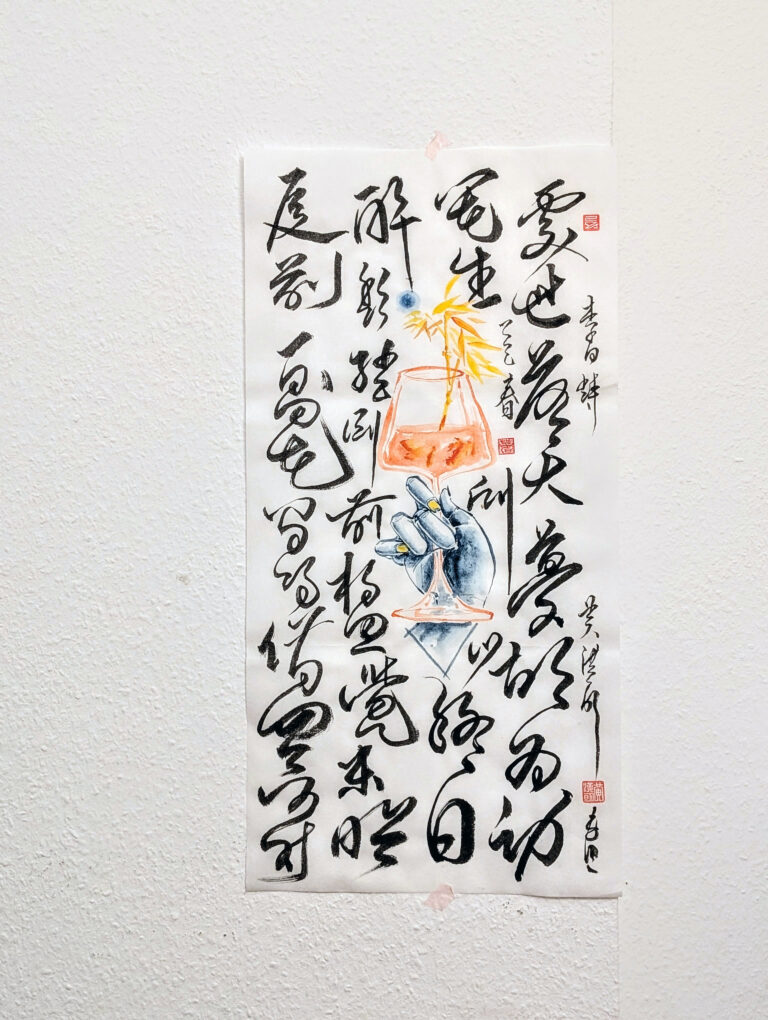 處世若大夢胡為勞
其生所以終日
醉頹然臥前楹覺來眄
庭前一鳥花間鳴借問此何時
李白詩
乙巳春